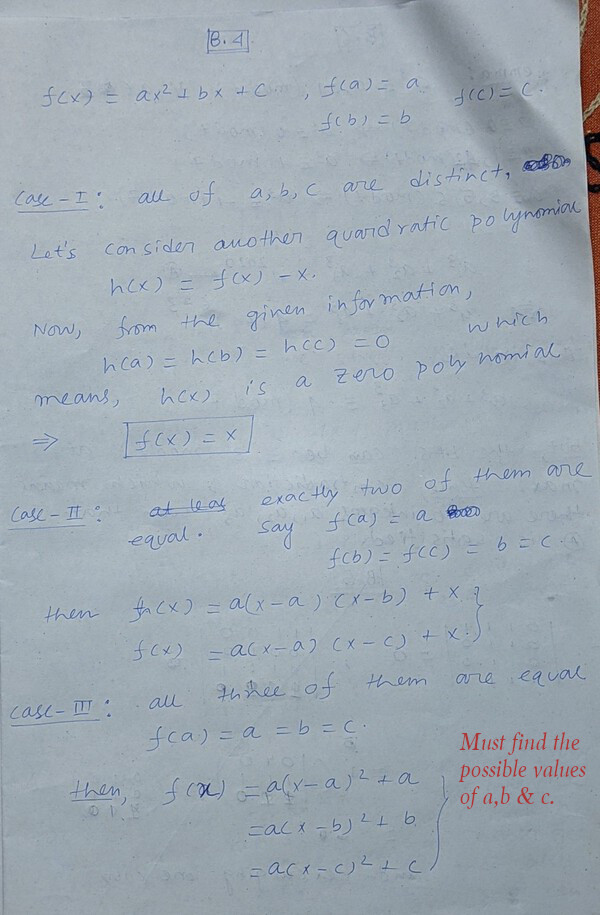 B.4
f(x) = ax² + bx + c , f(a) = a f(c) = c.
f(b) = b
Case-I: all of a, b, c are distinct.
Let's consider another quardratic polynomial
h(x) = f(x) - x.
Now, from the given information,
h(a) = h(b) = h(c) = 0 which
means, h(x) is a zero polynomial
⇒ f(x) = x
Case-II: at leas exactly two of them are
equal. say f(a) = a
f(b) = f(c) = b = c.
then f(x) = a(x-a) (x-b) + x
f(x) = a(x-a) (x-c) + x.
Case-III: all three of them are equal
f(a) = a = b = c.
then, f(x) = a(x-a)² + a
= a(x-b)² + b
= a(x-c)² + c
Must find the
possible values
of a,b & c.